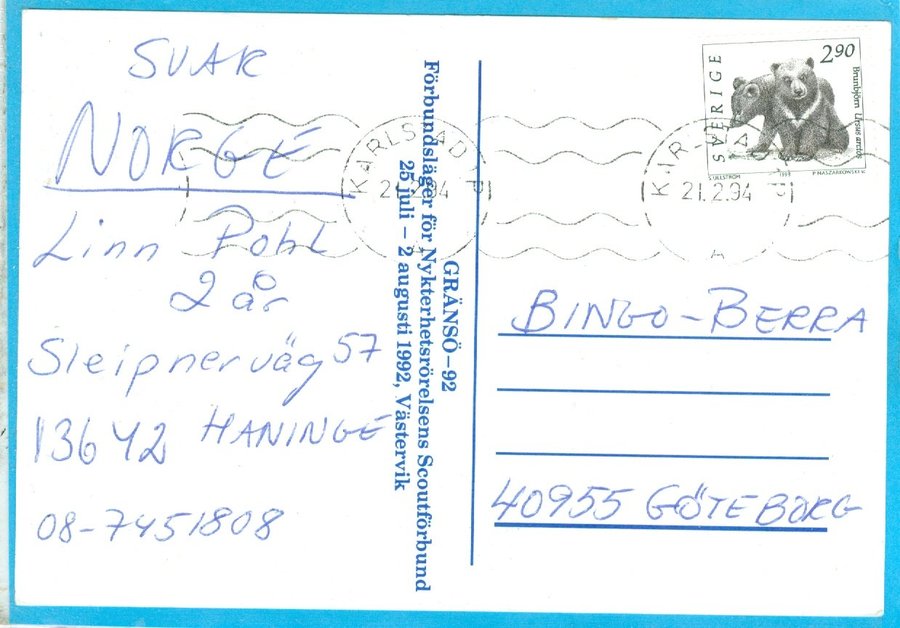 SVAR
NORGE
Linn Pohl
2 år
Sleipnerväg 57
13642 HANINGE
08-7451808
GRÄNSÖ–92
Förbundsläger för Nykterhetsrörelsens Scoutförbund
25 juli – 2 augusti 1992, Västervik
KARLSTAD P
21.2.94
SVERIGE
2.90
Brunbjörn Ursus arctos
1993
P. NASZARKOWSKI
21.2.94
A
BINGO-BERRA
40955 GÖTEBORG